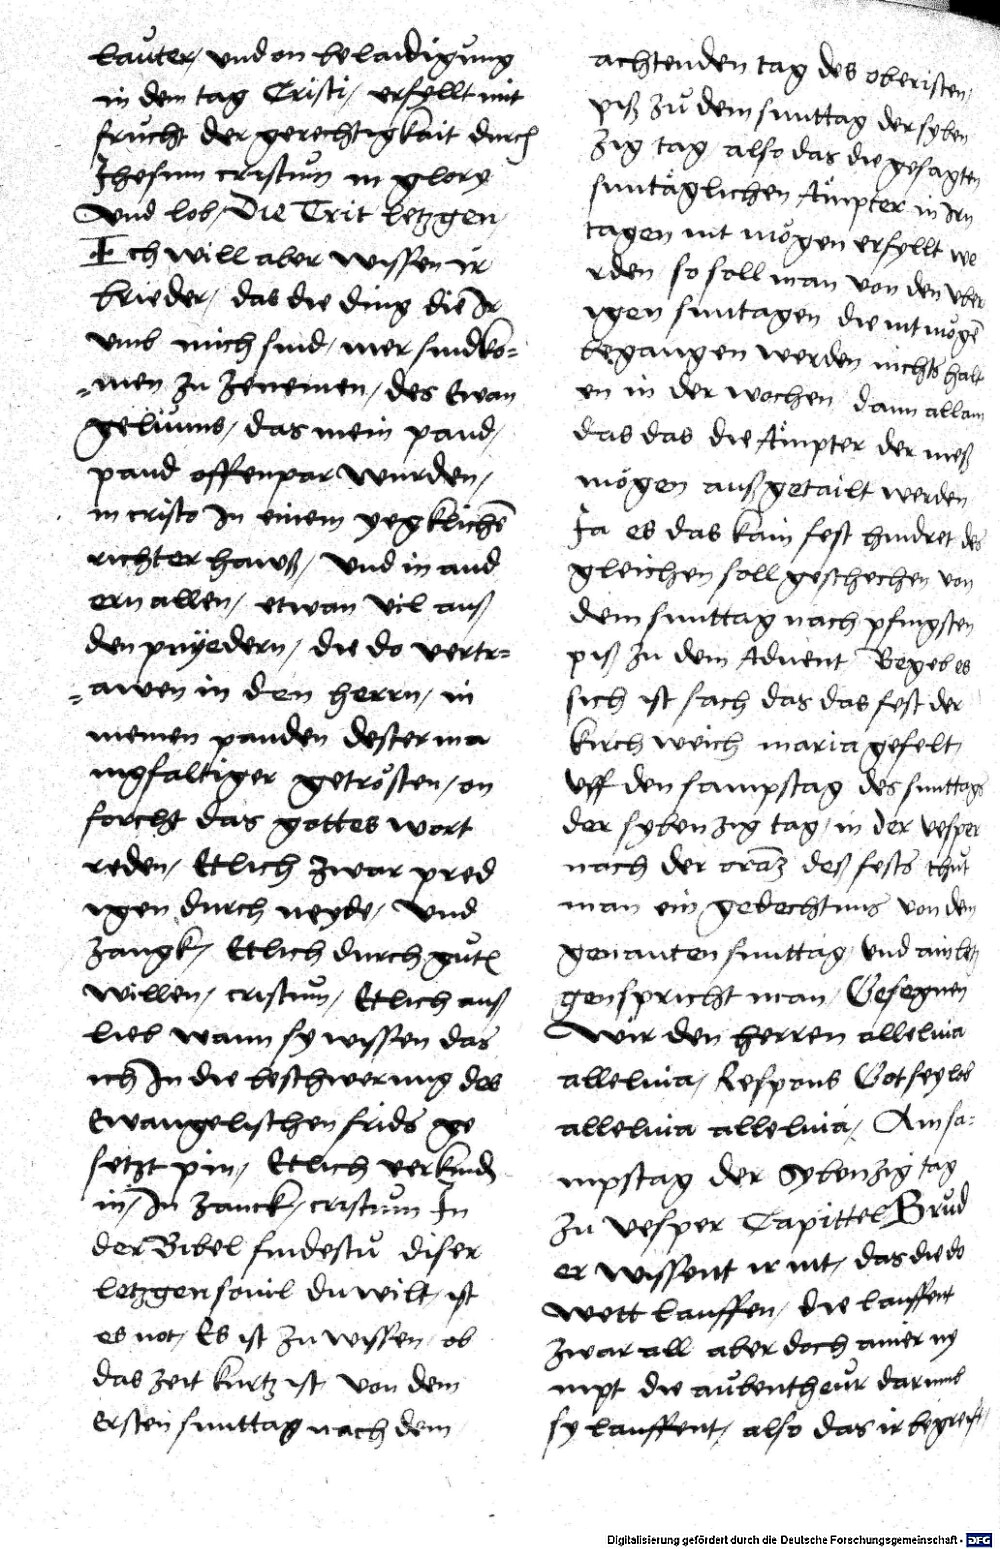 lauter, vnd on belaidigung
in dem tag Cristi, erfyllt mit
frücht der gerechtigkait durch
Jhesum cristum in glory
vnd lob, Die Trit letzgen,
Ich will aber wissen ir
brieder, das die ding die Ir
vmb mich sind, mer sind ko=
=men zu zenemen, des Ewan
geliums, das mein pand,
pand offenpar wurden,
in cristo In einem yegklichē
richter hawß, vnd in and
ern allen, etwan vil auß
den pryedern, die do vertr=
=awen in den herrn, in
meinen panden dester ma
nigfaltiger getrösten, on
forcht das gottes wort
reden, Etlich zwar pred
igen durch neyde, vnd
zangk, Etlich durch gůtē
willen, cristum, Etlich auß
lieb wann sy wissen das
ich In die beschwerung des
Ewangelischen frids ge
setzt pin, Etlich verkind
in, In zanck, cristum In
der Bibel findestu diser
letzgen souil du wilt, ist
es not, Es ist zu wissen ob
das zeit kurtz ist von dem
Ersten sunttag nach dem
achtenden tag des oberisten,
piß zu dem sunttag der syben
zig tag also das die gesagten
suntäglichen Ämpter in Irn
tagen nit mögen erfyllt we
rden, so soll man von den vber
igen suntagen die nit mögē
begangen werden nichts halt
en in der wochen, dann allain
das das die Ämpter der meß
mögen auß getailt werden
Ja es das kain fest hindret des
gleichen soll geschechen von
dem sunttag nach pfingsten
piß zu dem Aduent Begeb es
sich ist sach das das fest der
kirchweich maria gefelt,
vff den sampstag des sunttags
der sybenzig tag, in der vesper
nach der oratz deß fests thut
man ein gedechtnus von dem
genanten sunttag, vnd ain letz
gen spricht man, Gesegnen
Wir den herren alleluia
alleluia, Respons Got sey lob
alleluia alleluia, Am sa=
mpstag der Sybenzig tag
zu vesper Capittel Brüd
er wissent ir nit, das die do
wett lauffen, die lauffent
zwar all aber doch ainer ny
mpt die aubentheur darumb
sy lauffent, also das ir begreift,
Digitalisierung gefördert durch die Deutsche Forschungsgemeinschaft - DFG